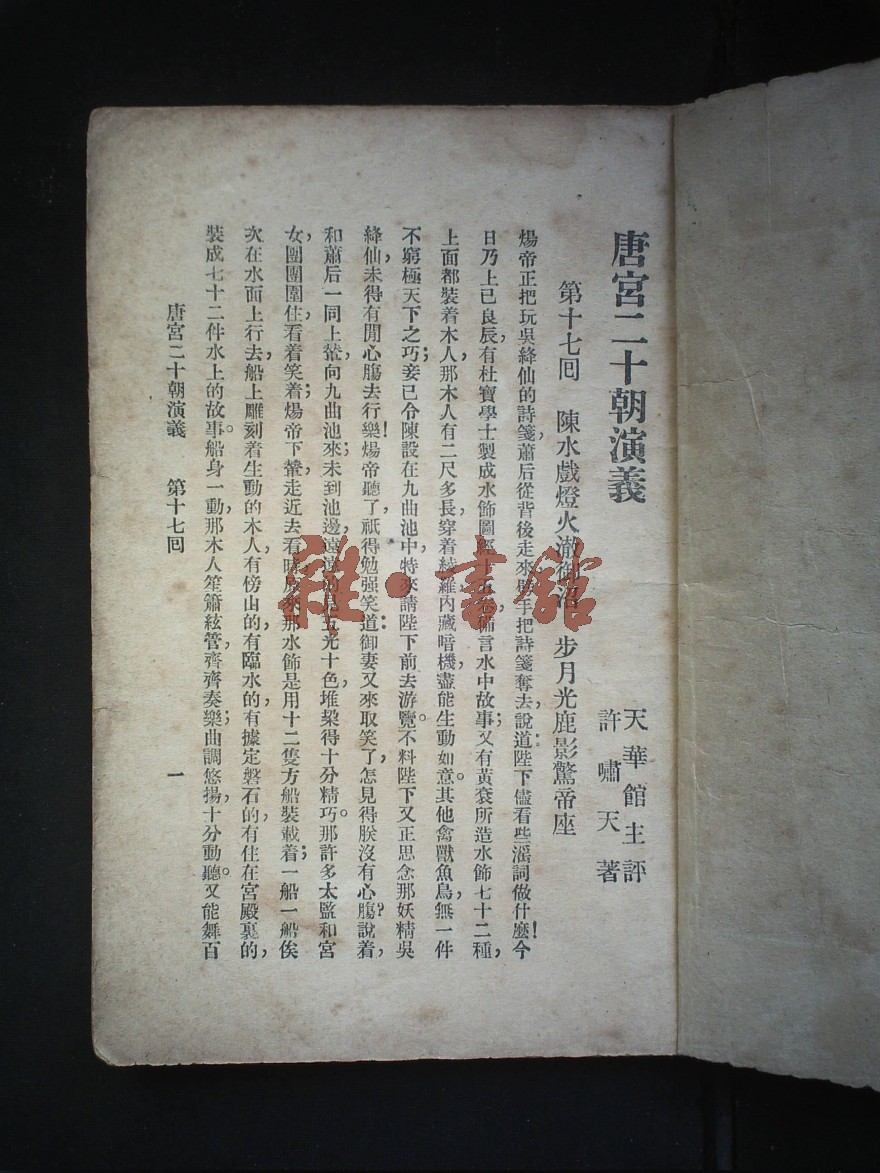 唐宮二十朝演義
天華館主評
許嘯天著
第十七回　陳水戲燈火澈御沼　步月光鹿影驚帝座
煬帝正把玩吳絳仙的詩箋，蕭后從背後走來，手把詩箋奪去，說道：陛下儘看些滛詞做什麼！今
日乃上巳良辰，有杜寶學士製成水飾圖經十五卷，備言水中故事；又有黃袞所造水飾七十二種，
上面都裝着木人，那木人有二尺多長，穿着綾羅，內藏暗機，盡能生動如意。其他禽獸魚鳥，無一件
不窮極天下之巧；妾已令陳設在九曲池中，特來請陛下前去游覽。不料陛下又正思念那妖精吳
絳仙，未得有閒心膓去行樂！煬帝聽了，祇得勉强笑道：御妻又來取笑了，怎見得朕沒有心膓？說着，
和蕭后一同上輦，向九曲池來；未到池邊，遠遠的見五光十色，堆栔得十分精巧。那許多太監和宮
女，團團圍住，看着笑着；煬帝下輦，走近去看時，原來那水飾是用十二隻方船裝載着；一船一船俟
次在水面上行去，船上雕刻着生動的木人，有傍山的，有臨水的，有據定磐石的，有住在宮殿裏的，
裝成七十二件水上的故事。船身一動，那木人笙簫絃管，齊齊奏樂；曲調悠揚，十分動聽。又能舞百
唐宮二十朝演義　第十七回　一
雅·書館